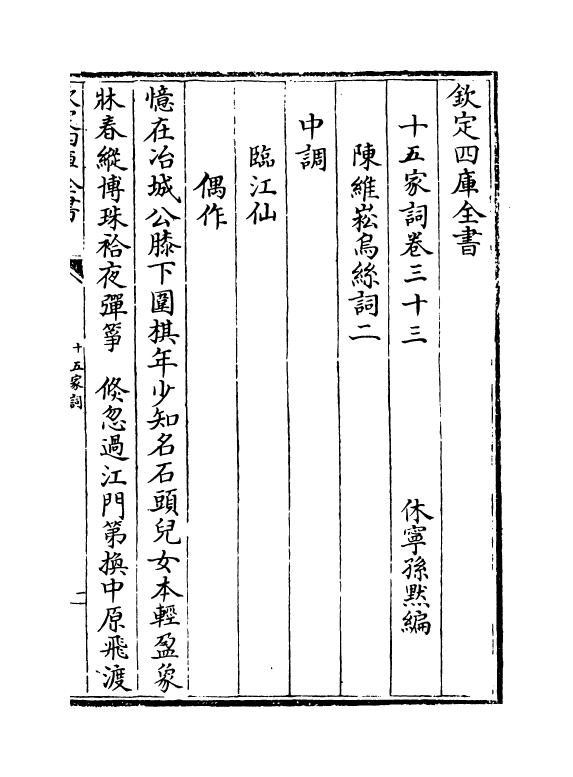 欽定四庫全書
十五家詞卷三十三 休寧孫默編
陳維崧烏絲詞二
中調
臨江仙
偶作
憶在冶城公膝下圍棋年少知名石頭兒女本輕盈象
牀春縱博珠袷夜彈箏 倐忽過江門第換中原飛渡
欽定四庫全書
十五家詞
二